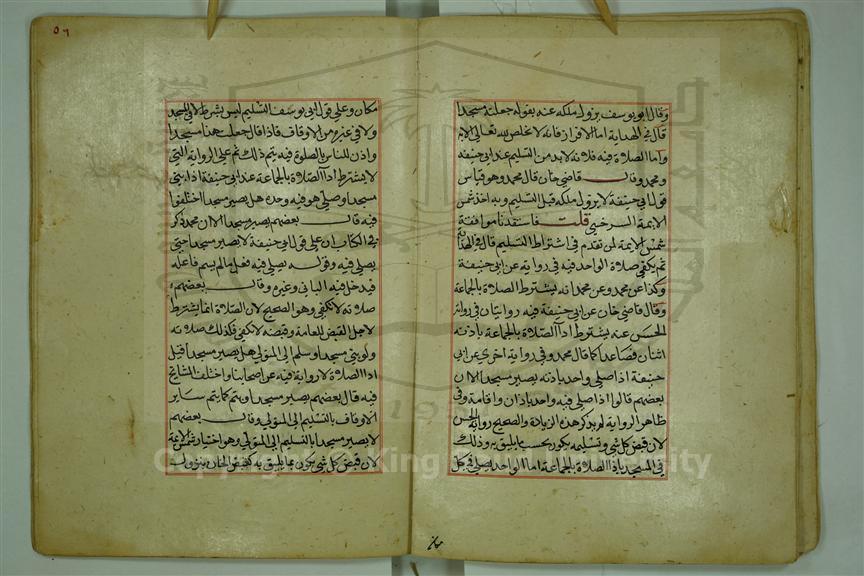 وقال ابو يوسف يزول ملكه عنه بقوله جعلته مسجدا
قال في الهداية اما الافراز فانه لا يخلص لله تعالى الا به
واما الصلاة فيه فلانه لابد من التسليم عند ابي حنيفة
ومحمد وقال قاضي خان قال محمد وهو قياس
قول ابي حنيفة لا يزول ملكه قبل التسليم وبه اخذ شمس
الايمة السرخسي قلت فاستفدنا موافقة
شمس الايمة لمن تقدم في اشتراط التسليم قال في الهداية
ثم يكفي صلاة الواحد فيه في رواية عن ابي حنيفة
وكذا عن محمد وعن محمد انه يشترط الصلاة بالجماعة
وقال قاضي خان عن ابي حنيفة فيه روايتان في رواية
الحسن عنه يشترط اداآ الصلاة بالجماعة باذنه
اثنان فصاعدا كما قال محمد وفي رواية اخري عن ابي
حنيفة اذا صلي واحد باذنه يصير مسجدا الا ان
بعضهم قالوا اذا صلي فيه واحد باذان واقامة وفي
ظاهر الرواية لم يذكر هذه الزيادة والصحيح رواية الحسن
لان قبض كل شي وتسليمه يكون بحسب ما يليق به وذلك
في المسجد باداآ الصلاة بالجماعة اما الواحد يصلي في كل
مكان
٥٦
مكان وعلي قول ابي يوسف التسليم ليس بشرط لا في المسجد
ولا في غيره من الاوقاف فاذا قال جعلت هذا مسجدا
واذن للناس بالصلوة فيه يتم ذلك ثم علي الرواية التي
لا يشترط اداآ الصلاة بالجماعة عند ابي حنيفة اذا بني
مسجدا وصلي هو فيه وحده هل يصير مسجدا اختلفوا
فيه قال بعضهم يصير مسجدا لان محمد ذكر
في الكتاب ان علي قول ابي حنيفة لا يصير مسجدا حتي
يصلي فيه وقوله يصلي فيه فعل مالم يسم فاعله
فيدخل فيه الباني وغيره وقال بعضهم
صلاته لا تكفي وهو الصحيح لان الصلاة انما يشترط
لاجل القبض للعامة وقبضه لا تكفي فكذلك صلاته
ولو بني مسجدا وسلم الي المتولي هل يصير مسجدا قبل
اداآ الصلاة لا رواية فيه عن اصحابنا واختلف المشايخ
فيه قال بعضهم يصير مسجدا ويتم كما يتم ساير
الاوقاف بالتسليم الي المتولي وقال بعضهم
لا يصير مسجدا بالتسليم الي المتولي وهو اختيار شمس الايمة
لان قبض كل شي يكون بما يليق به كقبض الخان بنزول